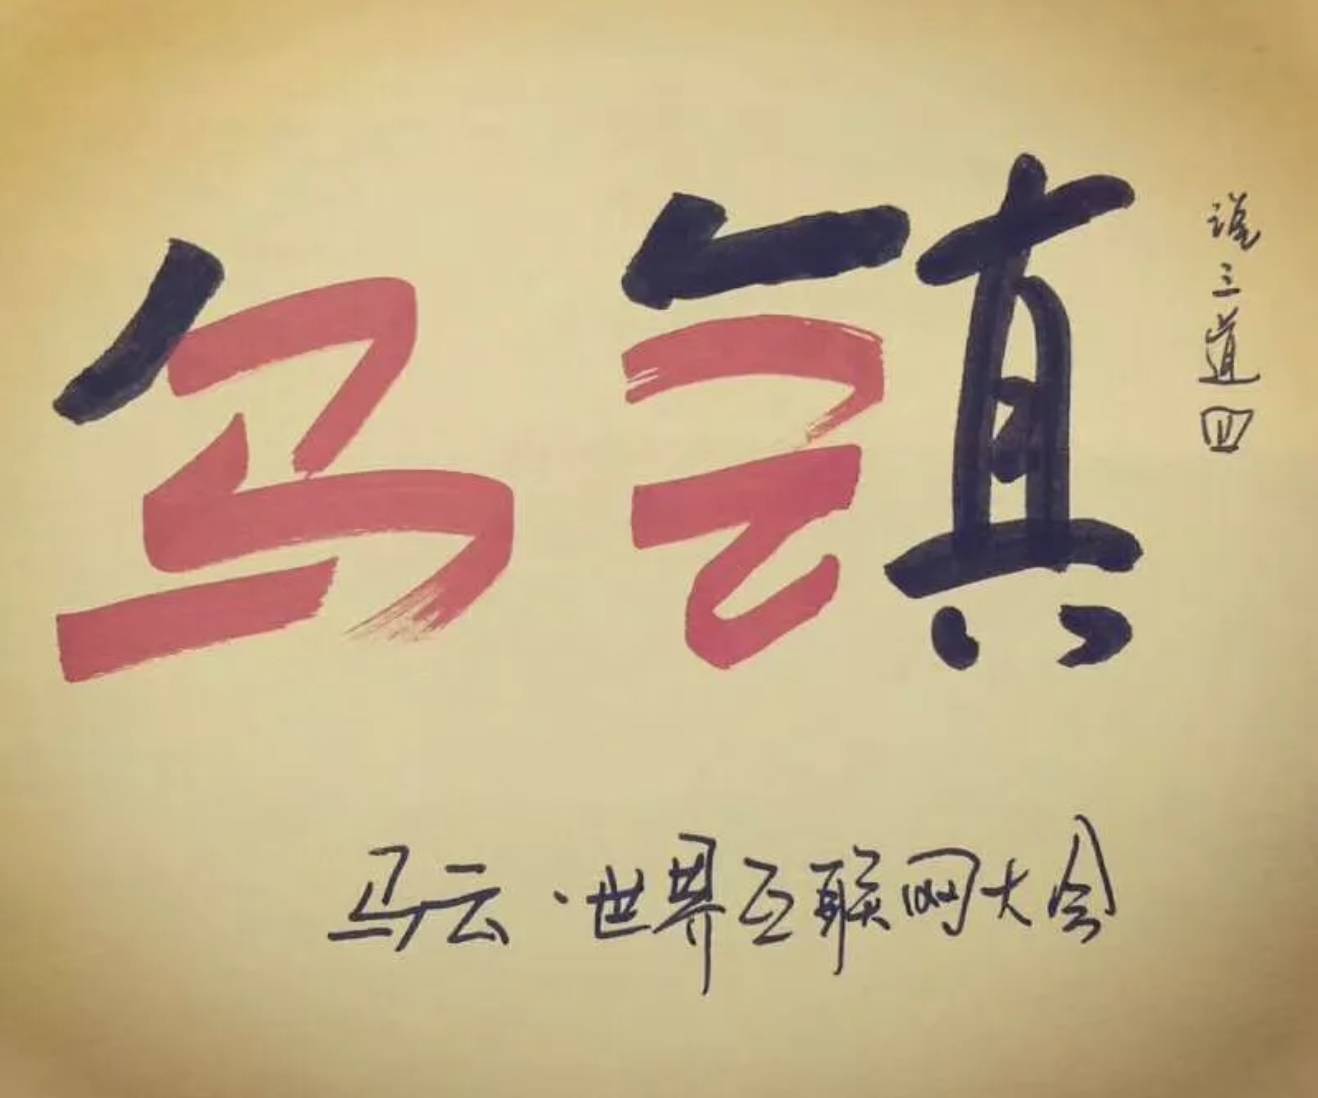 乌镇
说三道四
马云·世界互联网大会